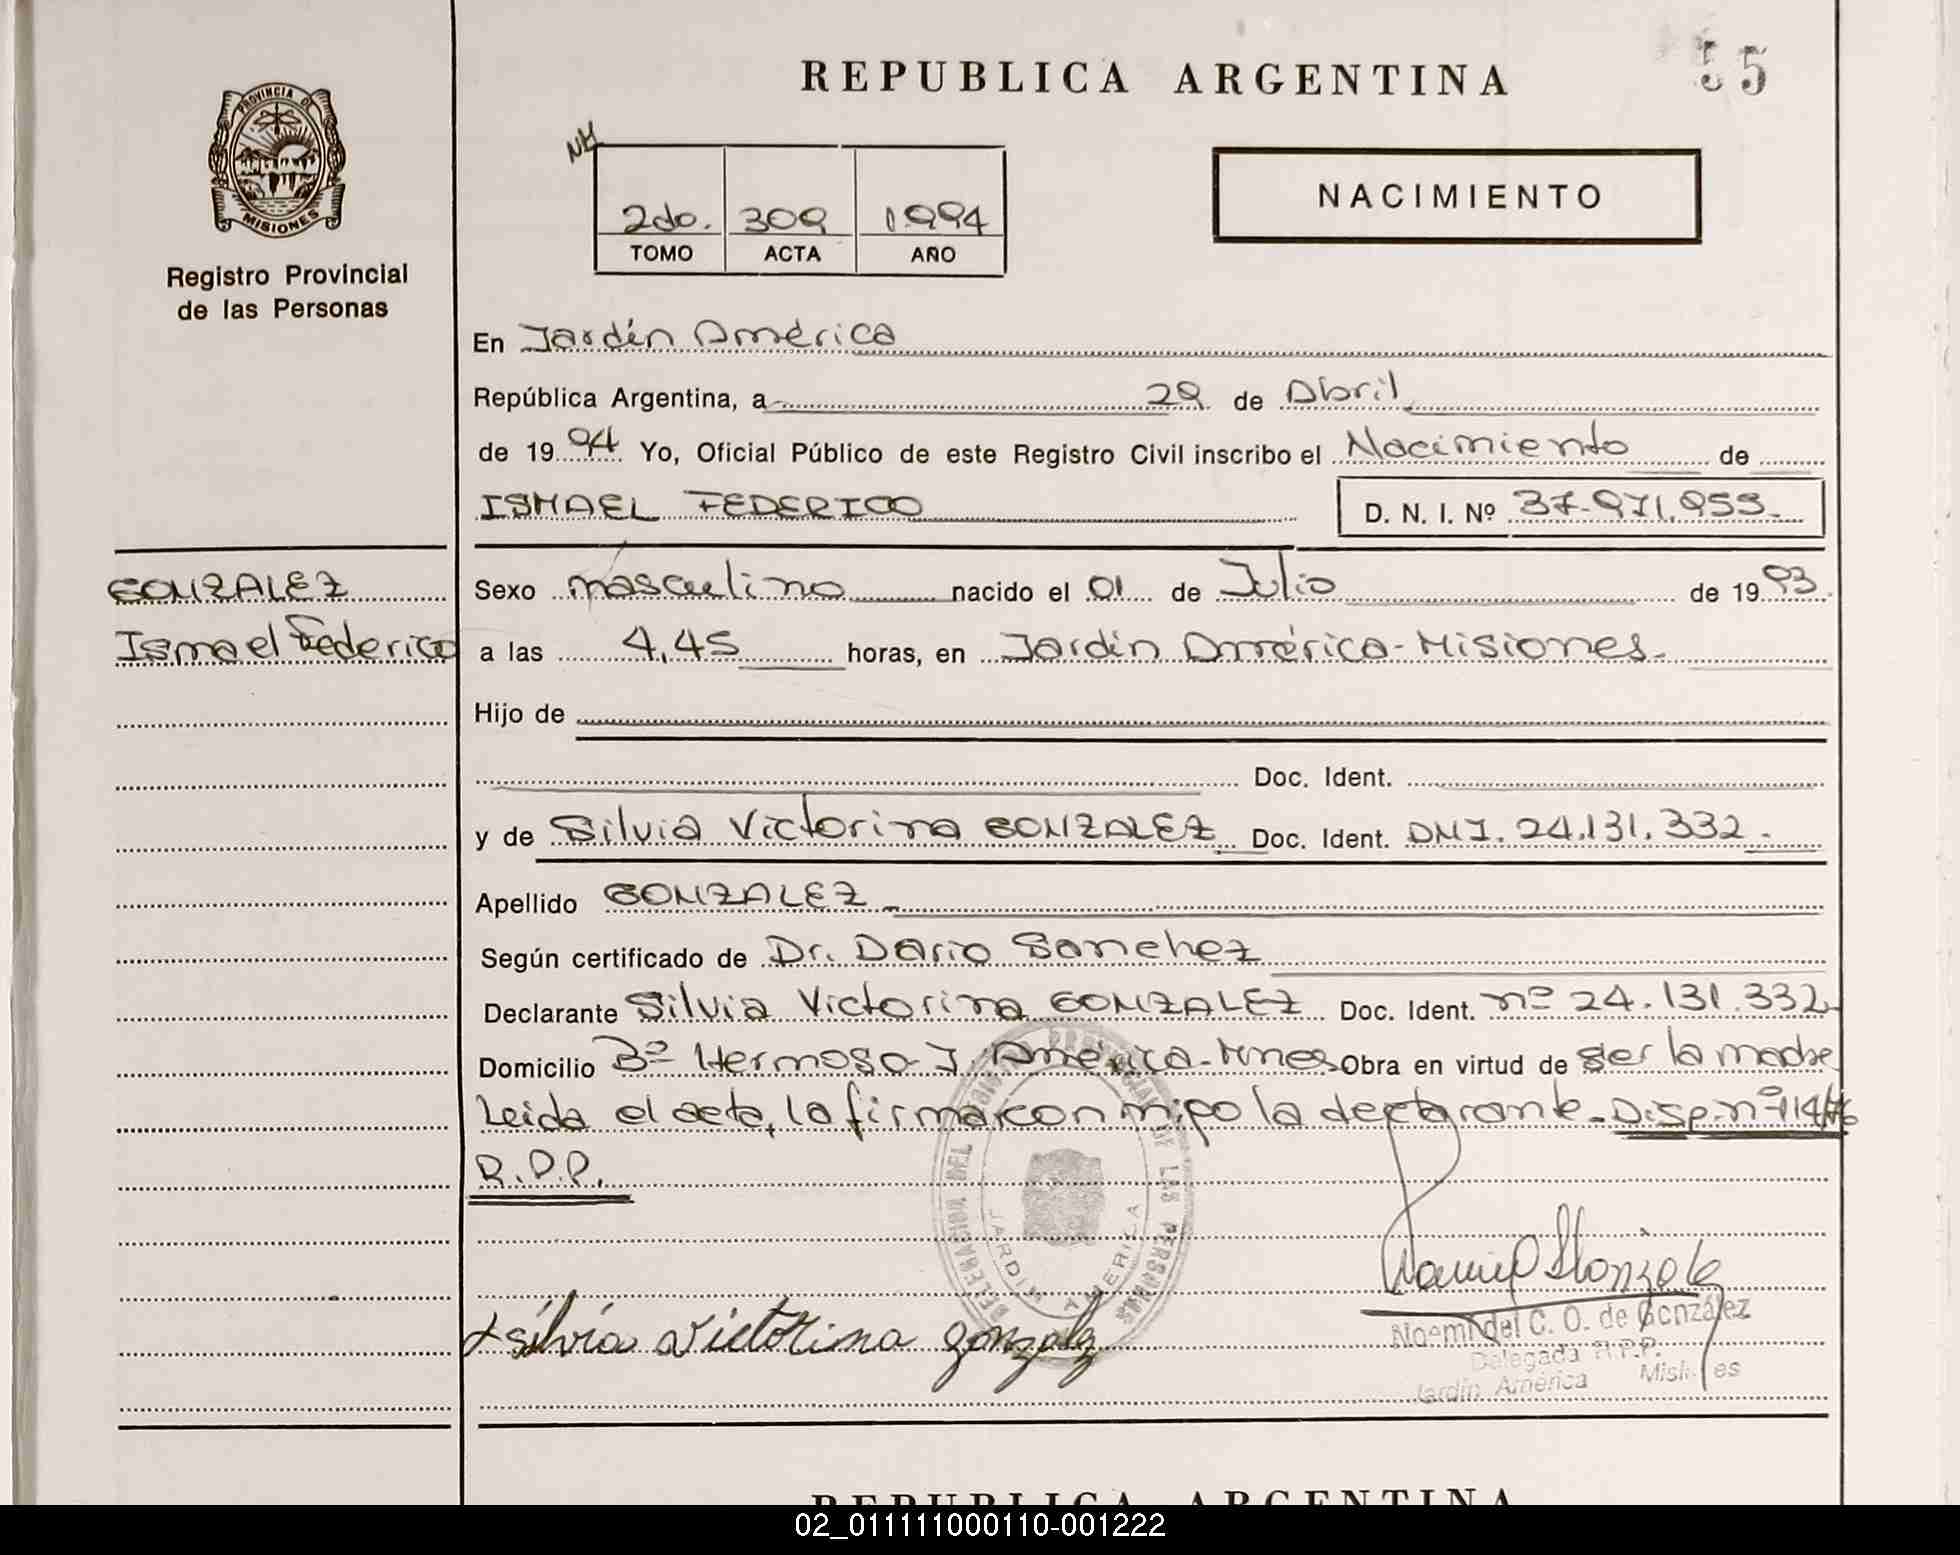 REPUBLICA ARGENTINA
55
PROVINCIA D
MISIONES
Registro Provincial
de las Personas
NH
2do. 309 1994
TOMO ACTA AÑO
NACIMIENTO
En Jardín América
República Argentina, a 29 de Abril
de 1994 Yo, Oficial Público de este Registro Civil inscribo el Nacimiento de
ISMAEL FEDERICO D. N. I. Nº 37.971.955.
GONZALEZ
Ismael Federico
Sexo masculino nacido el 01 de Julio de 1993
a las 4,45 horas, en Jardín América-Misiones.
Hijo de
Doc. Ident.
y de Silvia Victorina GONZALEZ Doc. Ident. DNI. 24.131.332.
Apellido GONZALEZ
Según certificado de Dr. Dario Sanchez
Declarante Silvia Victorina GONZALEZ Doc. Ident. nº 24.131.332
Domicilio Bº Hermoso-J. América-Mnes Obra en virtud de ser la madre
Leida el acta, la firma con migo la declarante-Disp. nº 114/76
R.P.P.
DELEGACION DEL REGISTRO PROVINCIAL DE LAS PERSONAS
JARDIN AMERICA
Silvia Victorina gonzalez
Noemi del C. O. de González
Delegada R.P.P.
Jardín América Misiones
REPUBLICA ARGENTINA
02_011111000110-001222